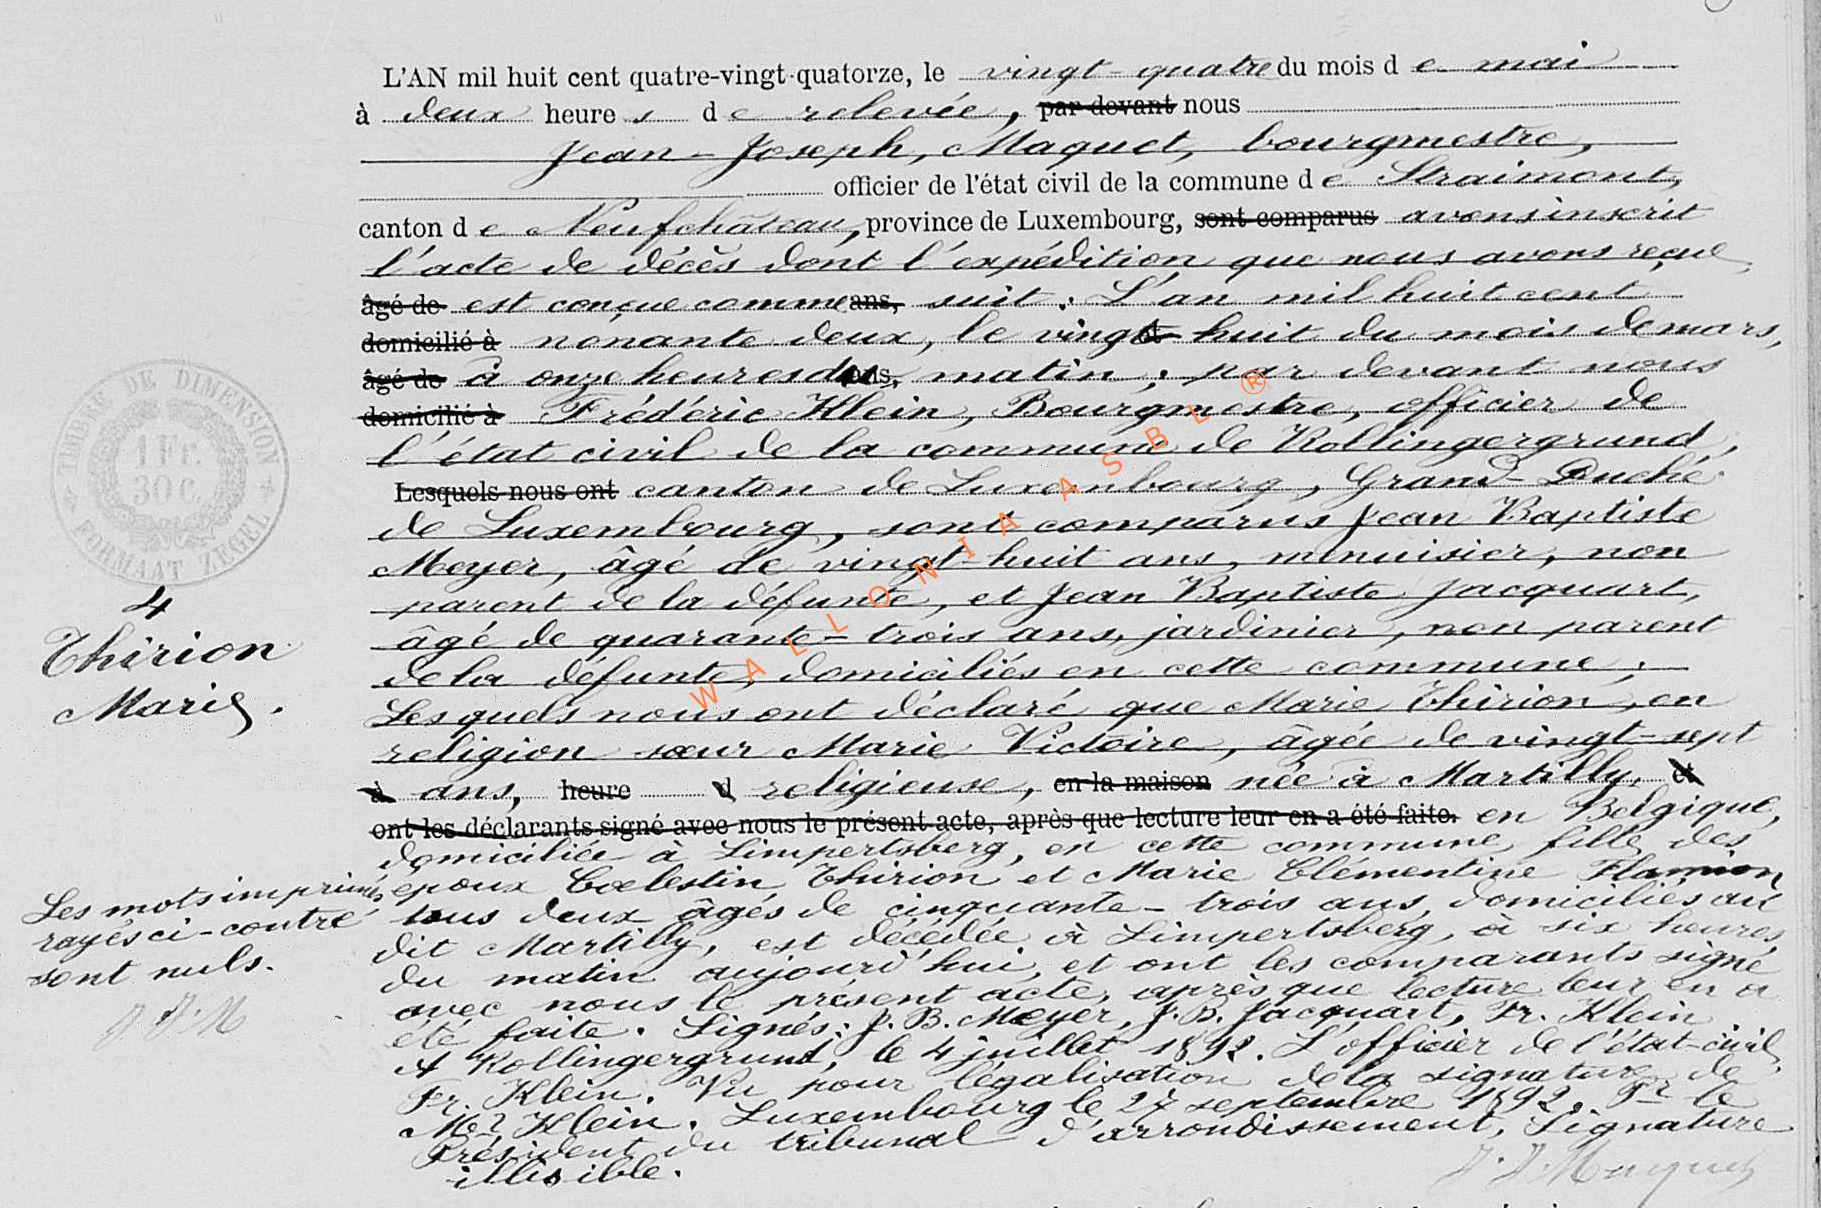 L'AN mil huit cent quatre-vingt-quatorze, le vingt-quatre du mois de mai
à deux heures de relevée, par devant nous
Jean-Joseph, Maquet, bourgmestre,
officier de l'état civil de la commune de Straimont,
canton de Neufchâteau, province de Luxembourg, sont comparus avons inscrit
l'acte de décès dont l'expédition que nous avons reçue
âgé de est conçue comme ans, suit : L'an mil huit cent
domicilié à nonante deux, le vingt huit du mois de mars,
âgé de à onze heures du ans, matin ; par devant nous
domicilié à Frédéric Klein, Bourgmestre, officier de
l'état civil de la commune de Rollingergrund,
Lesquels nous ont canton de Luxembourg, Grand-Duché
de Luxembourg, sont comparus Jean Baptiste
Meyer, âgé de vingt-huit ans, menuisier, non
parent de la défunte, et Jean Baptiste Jacquart,
âgé de quarante-trois ans, jardinier, non parent
de la défunte, domiciliés en cette commune.
Lesquels nous ont déclaré que Marie Thirion, en
religion sœur Marie Victoire, âgée de vingt-sept
à ans, heure d religieuse, en la maison née à Martilly, et
ont les déclarants signé avec nous le présent acte, après que lecture leur en a été faite. en Belgique,
domiciliée à Limpertsberg, en cette commune, fille des
époux Cœlestin Thirion et Marie Clémentine Flamion
tous deux âgés de cinquante-trois ans, domiciliés au
dit Martilly, est décédée à Limpertsberg, à six heures
du matin aujourd'hui, et ont les comparants signé
avec nous le présent acte, après que lecture leur en a
été faite. Signés : J. B. Meyer, J. B. Jacquart, Fr. Klein
A Rollingergrund, le 4 juillet 1892. L'officier de l'état civil,
Fr. Klein. Vu pour légalisation de la signature de
Mr Klein. Luxembourg le 27 septembre 1892. Pr le
Président du tribunal d'arrondissement, Signature
illisible.
J. J. Maquet
TIMBRE DE DIMENSION
1 Fr.
30 C.
FORMAAT ZEGEL
4
Thirion
Marie.
Les mots imprimés
rayés ci-contre
sont nuls.
J. J. M
WALLONIA ASBL ®